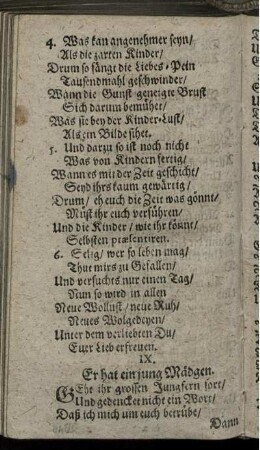 4. Was kan angenehmer seyn/
Als die zarten Kinder/
Drum so fängt die Liebes-Pein
Tausendmahl geschwinder/
Wann die Gunst-geneigte Brust
Sich darum bemühet/
Was sie bey der Kinder-Lust/
Als ein Bilde sihet.
5. Und darzu so ist noch nicht
Was von Kindern fertig/
Wann es mit der Zeit geschicht/
Seyd ihrs kaum gewärtig/
Drum/ eh euch die Zeit was gönnt/
Müst ihr euch verführen/
Und die Kinder/ wie ihr könnt/
Selbsten præsentiren.
6. Selig/ wer so leben mag/
Thut mirs zu Gefallen/
Und versuchts nur einen Tag/
Nun so wird in allen
Neue Wollust/ neue Ruh/
Neues Wolgedeyen/
Unter dem verliebten Du/
Euer Lieb erfreuen.
IX.
Er hat ein jung Mädgen.
GEht ihr grossen Jungfern fort/
Und gedencket nicht ein Wort/
Daß ich mich um euch betrübe/
Dann